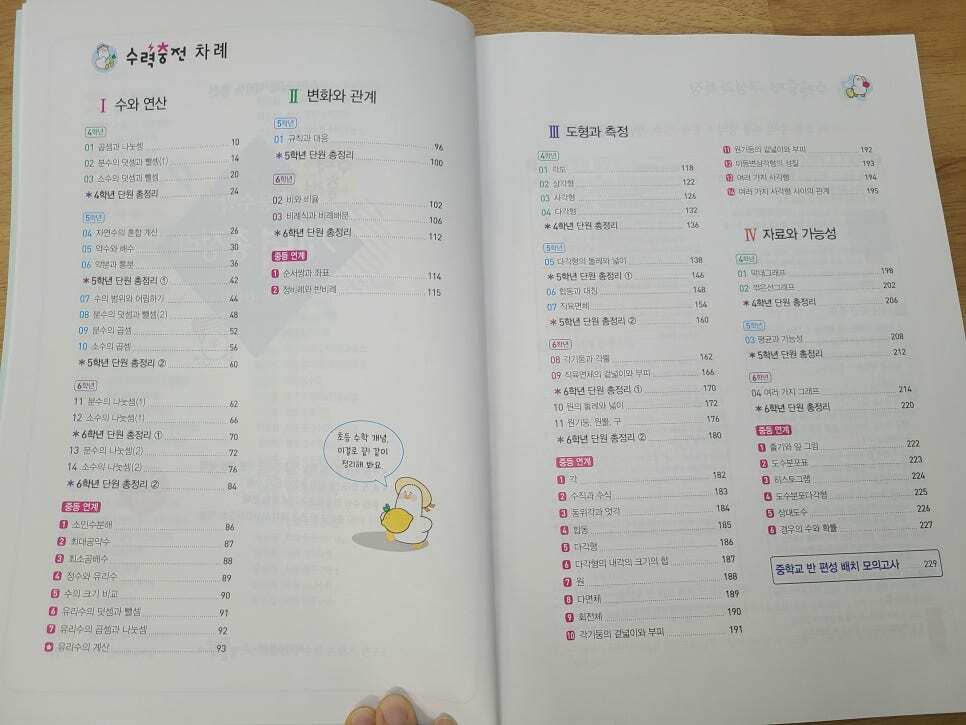 수력충전 차례
I 수와 연산
4학년
01 곱셈과 나눗셈 10
02 분수의 덧셈과 뺄셈(1) 14
03 소수의 덧셈과 뺄셈 20
* 4학년 단원 총정리 24
5학년
04 자연수의 혼합 계산 26
05 약수와 배수 30
06 약분과 통분 36
* 5학년 단원 총정리 ① 42
07 수의 범위와 어림하기 44
08 분수의 덧셈과 뺄셈(2) 48
09 분수의 곱셈 52
10 소수의 곱셈 56
* 5학년 단원 총정리 ② 60
6학년
11 분수의 나눗셈(1) 62
12 소수의 나눗셈(1) 66
* 6학년 단원 총정리 ① 70
13 분수의 나눗셈(2) 72
14 소수의 나눗셈(2) 76
* 6학년 단원 총정리 ② 84
중등 연계
1 소인수분해 86
2 최대공약수 87
3 최소공배수 88
4 정수와 유리수 89
5 수의 크기 비교 90
6 유리수의 덧셈과 뺄셈 91
7 유리수의 곱셈과 나눗셈 92
유리수의 계산 93
II 변화와 관계
5학년
01 규칙과 대응 96
* 5학년 단원 총정리 100
6학년
02 비와 비율 102
03 비례식과 비례배분 106
* 6학년 단원 총정리 112
중등 연계
1 순서쌍과 좌표 114
2 정비례와 반비례 115
초등 수학 개념,
이걸로 끝! 같이
정리해 봐요
III 도형과 측정
4학년
01 각도 118
02 삼각형 122
03 사각형 126
04 다각형 132
* 4학년 단원 총정리 136
5학년
05 다각형의 둘레와 넓이 138
* 5학년 단원 총정리 ① 146
06 합동과 대칭 148
07 직육면체 154
* 5학년 단원 총정리 ② 160
6학년
08 각기둥과 각뿔 162
09 직육면체의 겉넓이와 부피 166
* 6학년 단원 총정리 ① 170
10 원의 둘레와 넓이 172
11 원기둥, 원뿔, 구 176
* 6학년 단원 총정리 ② 180
중등 연계
1 각 182
2 수직과 수선 183
3 동위각과 엇각 184
4 합동 185
5 다각형 186
6 다각형의 내각의 크기의 합 187
7 원 188
8 다면체 189
9 회전체 190
10 각기둥의 겉넓이와 부피 191
11 원기둥의 겉넓이와 부피 192
12 이등변삼각형의 성질 193
13 여러 가지 사각형 194
14 여러 가지 사각형 사이의 관계 195
IV 자료와 가능성
4학년
01 막대그래프 198
02 꺾은선그래프 202
* 4학년 단원 총정리 206
5학년
03 평균과 가능성 208
* 5학년 단원 총정리 212
6학년
04 여러 가지 그래프 214
* 6학년 단원 총정리 220
중등 연계
1 줄기와 잎 그림 222
2 도수분포표 223
3 히스토그램 224
4 도수분포다각형 225
5 상대도수 226
6 경우의 수와 확률 227
중학교 반 편성 배치 모의고사 229